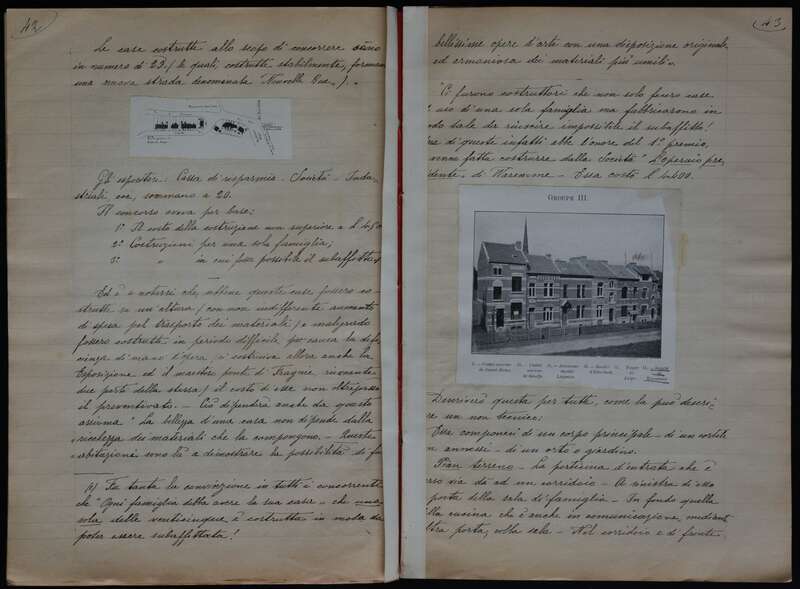 42
Le case costrutte allo scopo di concorrere
in numero di 28, le quali, costrutte stabilmente, formano
una nuova strada denominata "Nouvelle
Gli espositori: Cassa di risparmio - Società - Indu-
striali ecc, sommano a 20.
Il concorso aveva per base:
1° Il costo della costruzione non superiore a L.
2° Costruzioni per una sola famiglia;
3° " in cui fosse possibile il subaffitto
Ed è a notarsi che, sebbene queste case fossero co-
strutte su un'altura (con non indifferente aumento
di spesa pel trasporto dei materiali) e malgrado
fossero costrutte in periodo difficile per causa la defi-
cienza di mano d'opera, si costruiva allora anche la
Esposizione ed il maestro ponte di Fragnée rinomate
due porte della stessa) il costo di esse non oltrepassò
il preventivato. - Ciò dipenderà anche da questo
assioma "La bellezza di una casa non dipende dalla
ricchezza dei materiali che la compongono. - Queste
abitazioni sono là a dimostrare la possibilità di
Fu tanta la convinzione in tutti i concorrenti
che "Ogni famiglia debba avere la sua casa" che una
sola delle venticinque è costrutta in modo da
poter essere subaffittata!
43
bellissime opere d'arte con una disposizione originale
ed armoniosa dei materiali più umili".
Ci furono costruttori che non solo fecero case
uso d'una sola famiglia ma fabbricarono in
modo tale da riuscire impossibile il subaffitto!
di queste infatti ebbe l'onore del 1° premio,
fatta costrurre dalla Società "L'operaio pre-
vidente" di Waremme - Essa costò L. 4400.
GROUPE III.
Descriverò questa per tutti, come la può descri-
vere un non tecnico:
Esse componesi di un corpo principale - di un cortile
annessi - di un orto o giardino.
Pian terreno - La portiera d'entrata che è
via dà ad un corridoio - A sinistra di esso
porta della sala di famiglia - In fondo quella
della cucina che è anche in comunicazione, mediante
altra porta, colla sala - Nel corridoio e di fronte